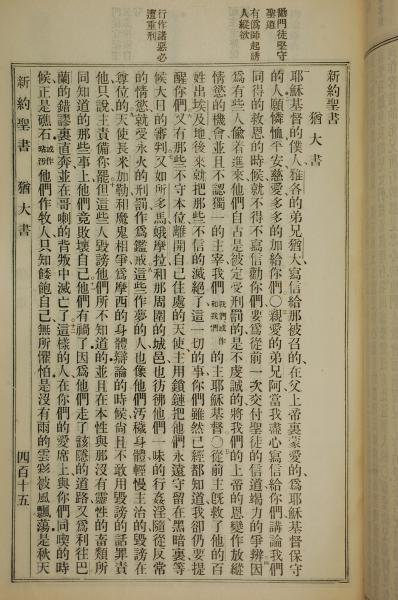 勸門徒堅守
聖道
有僞師起誘
人縱欲
行作諸惡必
遭重刑
新約聖書
猶大書
耶穌基督的僕人雅各的弟兄猶大寫信給那被召的在父上帝裏蒙愛的爲耶穌基督保守
的人願憐恤平安慈愛多多的加給你們〇親愛的弟兄阿當我盡心寫信給你們講論我們
同得的救恩的時候就不得不寫信勸你們要爲從前一次交付聖徒的信道竭力的爭辨因
爲有些人偸着進來他們自古是被定受刑罰的是不虔誠的將我們的上帝的恩變作放縱
情慾的機會並且不認獨一的主宰我們我們或作和我們的主耶穌基督〇從前主旣救了他的百
姓出埃及地後來就把那些不信的滅絕了這一切的事你們雖然已經都知道我卻仍要提
醒你們又有那些不守本位離開自己住處的天使主用鎖鏈把他們永遠守留在黑暗裏等
候大日的審判又如所多馬蛾摩拉和那周圍的城邑也彷彿他們一味的行姦淫隨從反常
的情慾就受永火的刑罰作爲鑑戒這些作夢的人也像他們汚穢身體輕慢主治的毀謗在
尊位的天使長米加勒和魔鬼相爭爲摩西的身體辯論的時候尙且不敢用毀謗的話罪責
他只說主責備你罷但這些人毀謗他們所不知道的並且在本性與那沒有靈性的畜類所
同知道的那些事上他們竟敗壞自己他們有禍了因爲他們走了該隱的道路又爲利往巴
蘭的錯謬裏直奔並在哥喇的背叛中滅亡了這樣的人在你們的愛席上與你們同喫的時
候正是礁石或作玷汚他們作牧人只知餧飽自己無所懼怕是沒有雨的雲彩被風飄蕩是秋天
新約聖書 猶大書 四百十五